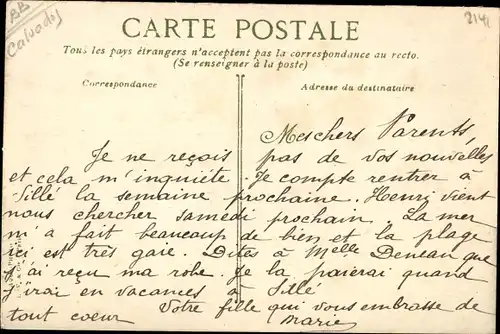 BB
Calvados
CARTE POSTALE
Tous les pays étrangers n'acceptent pas la correspondance au recto.
(Se renseigner à la poste)
Correspondance
Adresse du destinataire
Mes chers Parents,
Je ne reçois pas de vos nouvelles
et cela m'inquiète. Je compte rentrer à
Sillé la semaine prochaine. Henri vient
nous chercher samedi prochain. La mer
m'a fait beaucoup de bien et la plage
ici est très gaie. Dites à Melle Deneau que
j'ai reçu ma robe. Je la paierai quand
j'irai en vacances à Sillé
Votre fille qui vous embrasse de
tout coeur Marie